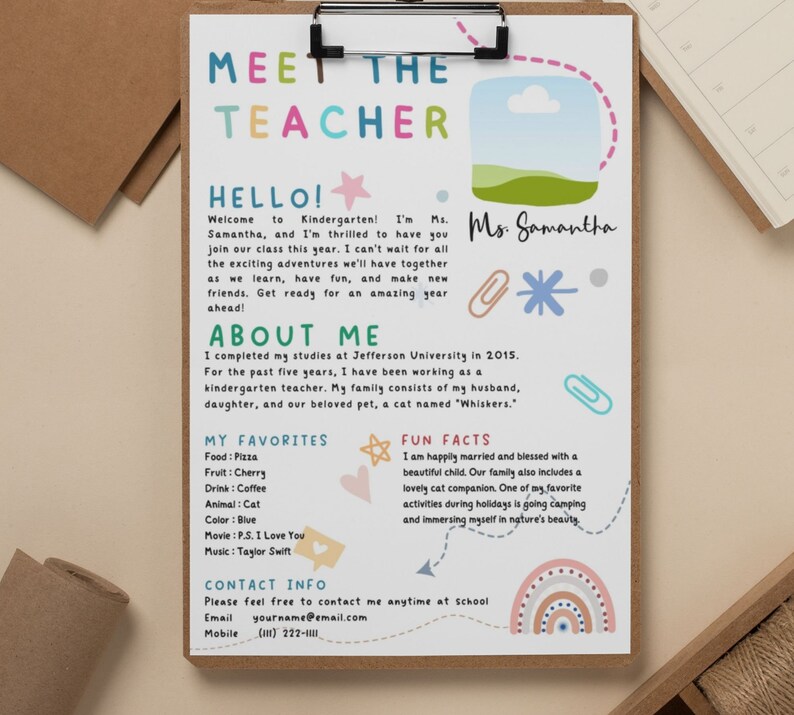 MEET THE
TEACHER
Ms. Samantha
HELLO!
Welcome to Kindergarten! I'm Ms.
Samantha, and I'm thrilled to have you
join our class this year. I can't wait for all
the exciting adventures we'll have together
as we learn, have fun, and make new
friends. Get ready for an amazing year
ahead!
ABOUT ME
I completed my studies at Jefferson University in 2015.
For the past five years, I have been working as a
kindergarten teacher. My family consists of my husband,
daughter, and our beloved pet, a cat named "Whiskers."
MY FAVORITES
Food : Pizza
Fruit : Cherry
Drink : Coffee
Animal : Cat
Color : Blue
Movie : P.S. I Love You
Music : Taylor Swift
FUN FACTS
I am happily married and blessed with a
beautiful child. Our family also includes a
lovely cat companion. One of my favorite
activities during holidays is going camping
and immersing myself in nature's beauty.
CONTACT INFO
Please feel free to contact me anytime at school
Email yourname@email.com
Mobile (111) 222-1111